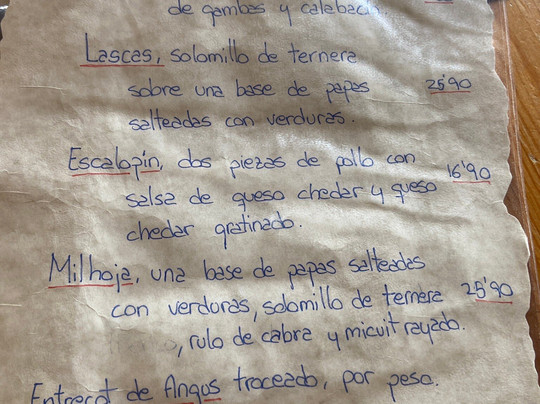 de gambas y calabacin
Lascas, solomillo de ternera
sobre una base de papas 25'90
salteadas con verduras.
Escalopín, dos piezas de pollo con
salsa de queso chedar y queso 16'90
chedar gratinado.
Milhoja, una base de papas salteadas
con verduras, solomillo de ternera 25'90
, rulo de cabra y micuit rayado.
Entrecot de Angus troceado, por peso.